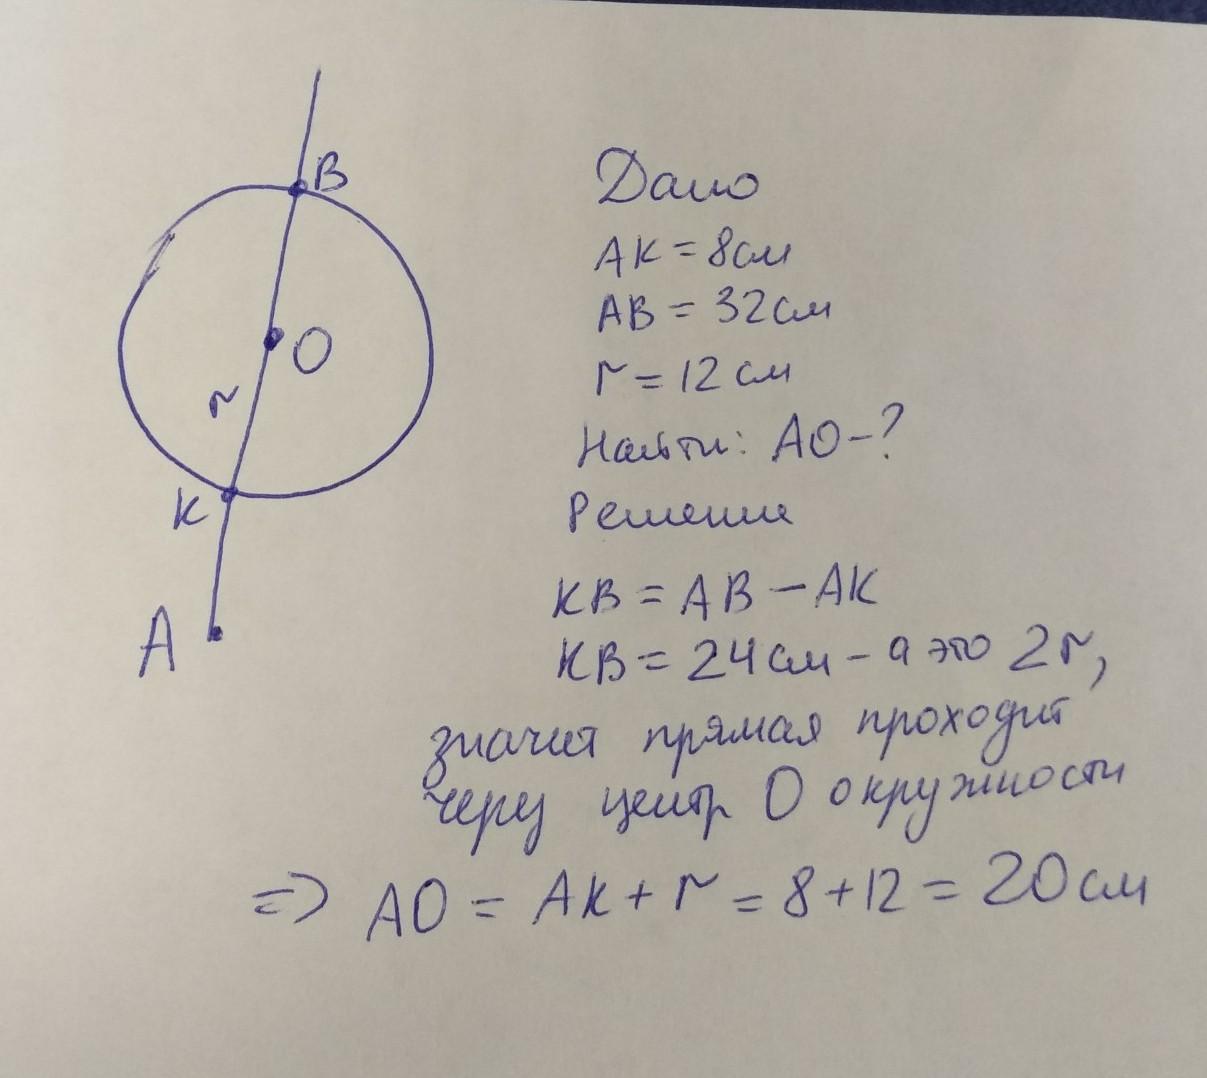 B
O
r
K
A
Дано
AK = 8см
AB = 32см
r = 12 см
Найти: AO-?
Решение
KB = AB - AK
KB = 24см - а это 2r,
значит прямая проходит
через центр O окружности
=> AO = AK + r = 8 + 12 = 20см